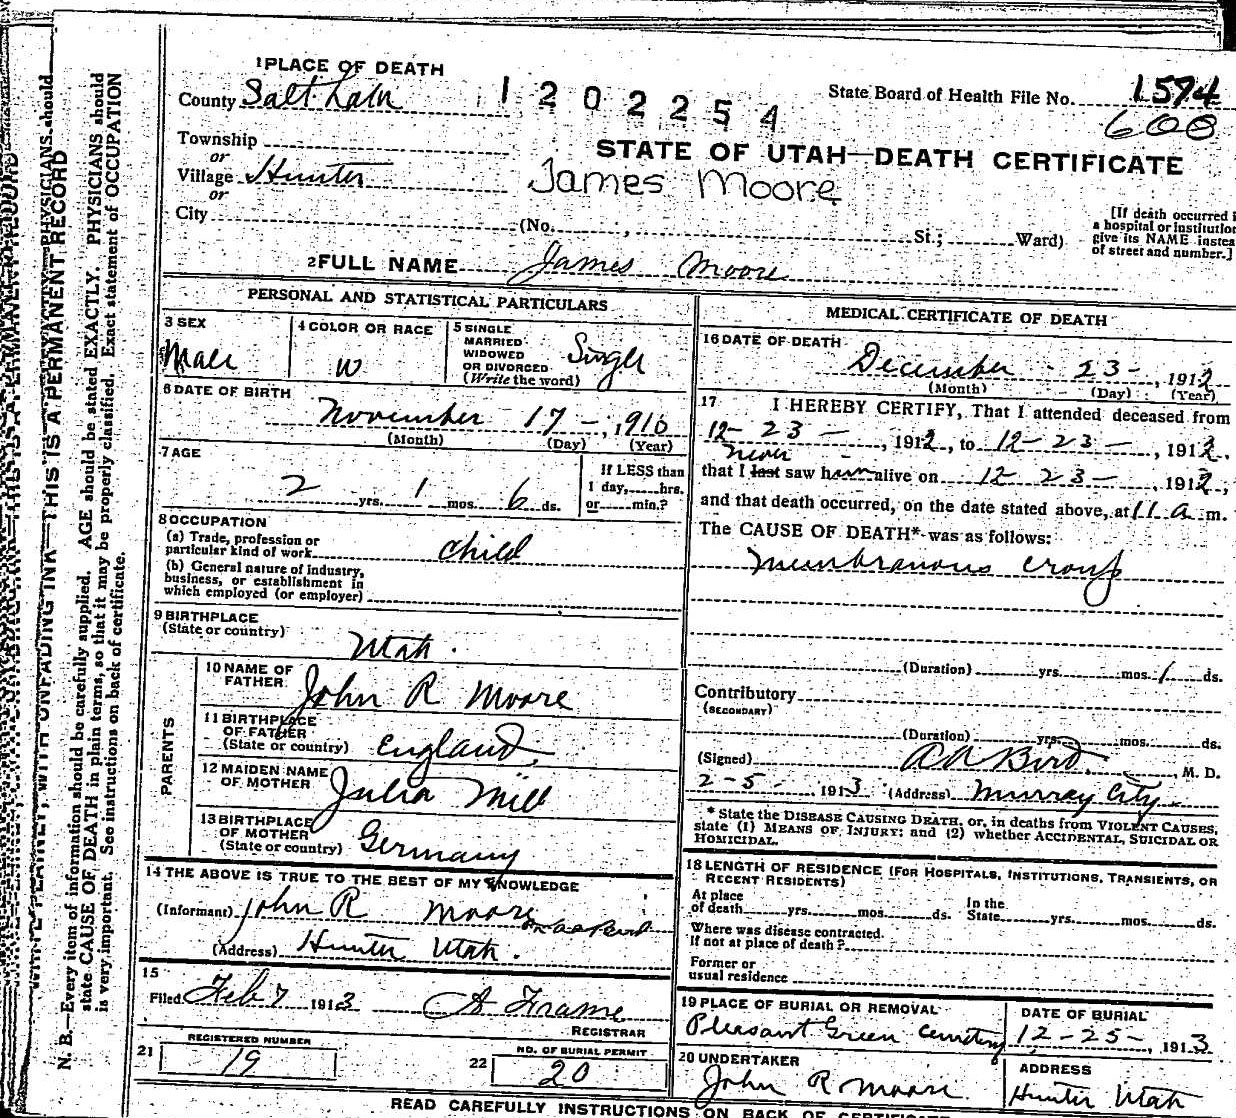 1 PLACE OF DEATH
County Salt Lake
1202254
State Board of Health File No. 1594
608
Township
or
Village Hunter
or
City
STATE OF UTAH—DEATH CERTIFICATE
James Moore
(No. , St.; Ward)
[If death occurred i
a hospital or institution
give its NAME instea
of street and number.]
2 FULL NAME James Moore
PERSONAL AND STATISTICAL PARTICULARS
3 SEX
Male
4 COLOR OR RACE
W
5 SINGLE
MARRIED
WIDOWED
OR DIVORCED
(Write the word)
Single
6 DATE OF BIRTH
November 17 -, 1910
(Month) (Day) (Year)
7 AGE
2 yrs. 1 mos. 6 ds.
If LESS than
1 day, hrs.
or min.?
8 OCCUPATION
(a) Trade, profession or
particular kind of work child
(b) General nature of industry,
business, or establishment in
which employed (or employer)
9 BIRTHPLACE
(State or country)
Utah.
PARENTS
10 NAME OF
FATHER John R Moore
11 BIRTHPLACE
OF FATHER
(State or country) England,
12 MAIDEN NAME
OF MOTHER Julia Mill
13 BIRTHPLACE
OF MOTHER
(State or country) Germany
14 THE ABOVE IS TRUE TO THE BEST OF MY KNOWLEDGE
(Informant) John R Moore
(Address) Hunter Utah.
15
Filed Feb 7 1913 A Frame
REGISTRAR
21 REGISTERED NUMBER
19
22 NO. OF BURIAL PERMIT
20
MEDICAL CERTIFICATE OF DEATH
16 DATE OF DEATH
December 23 -, 1912
(Month) (Day) (Year)
17 I HEREBY CERTIFY, That I attended deceased from
12-23-, 1912, to 12-23-, 1912,
never
that I last saw him alive on 12 23-, 1912,
and that death occurred, on the date stated above, at 11 a m.
The CAUSE OF DEATH* was as follows:
Membranous croup
(Duration) yrs. mos. 1 ds.
Contributory
(SECONDARY)
(Duration) yrs. mos. ds.
(Signed) A A Bird, M. D.
2-5- 1913 (Address) Murray City
* State the DISEASE CAUSING DEATH, or, in deaths from VIOLENT CAUSES,
state (1) MEANS OF INJURY; and (2) whether ACCIDENTAL, SUICIDAL OR
HOMICIDAL.
18 LENGTH OF RESIDENCE (FOR HOSPITALS, INSTITUTIONS, TRANSIENTS, OR
RECENT RESIDENTS)
At place
of death yrs. mos. ds.
In the
State yrs. mos. ds.
Where was disease contracted,
If not at place of death?
Former or
usual residence
19 PLACE OF BURIAL OR REMOVAL
Pleasant Green Cemetery
DATE OF BURIAL
12-25-, 1913
20 UNDERTAKER
John R Moore.
ADDRESS
Hunter Utah
READ CAREFULLY INSTRUCTIONS ON BACK OF CERTIFICATE
WRITE PLAINLY, WITH UNFADING INK—THIS IS A PERMANENT RECORD
N. B.—Every item of information should be carefully supplied. AGE should be stated EXACTLY. PHYSICIANS should
state CAUSE OF DEATH in plain terms, so that it may be properly classified. Exact statement of OCCUPATION
is very important. See instructions on back of certificate.